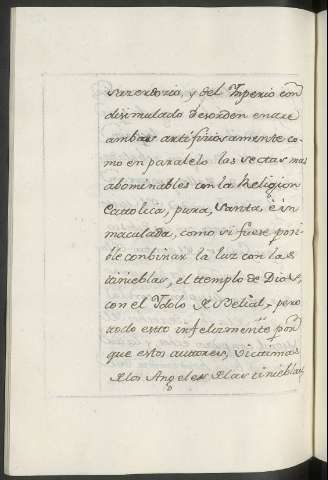 sacerdozio, y del Imperio con
disimulado desorden entre
ambas artifiziosamente co-
mo en paralelo las sectas mas
abominables con la Religion
Cattolica, pura, santa, è in
maculada, como si fuese posi-
ble conbinar la luz con las
tinieblas, el ttemplo de Dios,
con el Idolo de Belial, pero
todo esto infelizmente porq
que estos autores, victimas
de los Angeles de las tinieblas